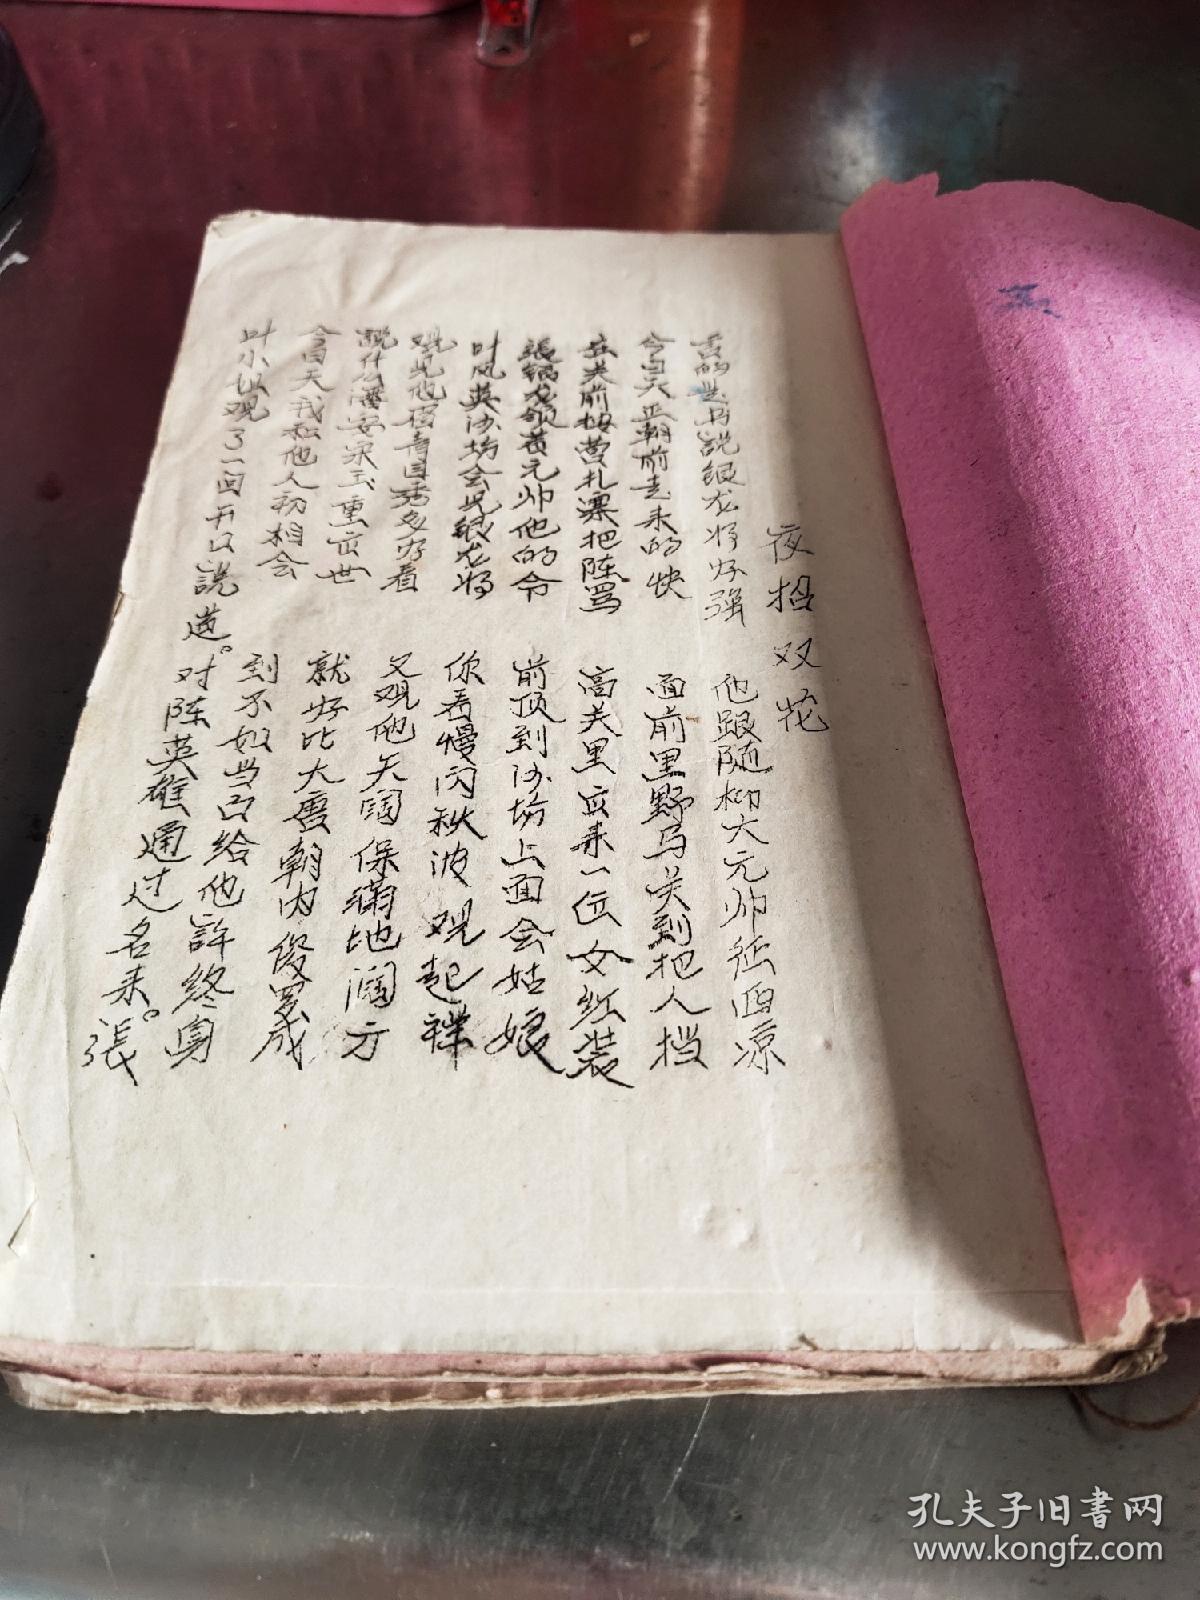 夜招双花
言的是马說银龙将好强 他跟随柳大元帅征西凉
今日天正朝前走来的快 面前里野马关到把人挡
在关前按营扎寨把陈骂 高关里应来一位女红装
張银龙领黄元帅他的令 前顶到沙场上面会姑娘
叶凤英沙场会见銀龙将 你看慢闪秋波观起祥
观见他眉青目秀多好看 又观他天阔保满地阔方
說什么潘安宋玉重应世 就好比大唐朝内俊罗成
今日天我和他人初相会 到不如当白給他許終身
叶小姐观了一回开口說道。对陈英雄通过名来。張
孔夫子旧书网
www.kongfz.com